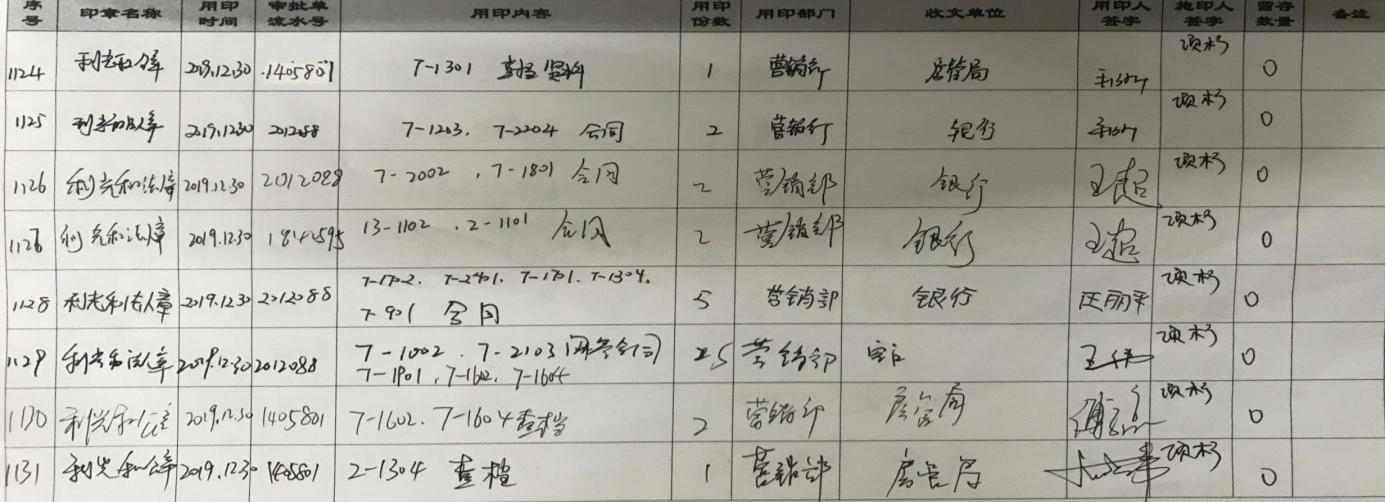 序号 印章名称 用印时间 审批单流水号 用印内容 用印份数 用印部门 收文单位 用印人签字 施印人签字 留存数量 备注
1124 2019.12.30 1405801 7-1301 查档资料 1 营销部 房管局 项杉 0
1125 2019.12.30 7-1203. 7-2204 合同 2 营销部 银行 项杉 0
1126 利兴和法人章 2019.12.30 2012088 7-2002 , 7-1801 合同 2 营销部 银行 王超 项杉 0
利兴和法人章 2019.12.30 13-1102 . 2-1101 合同 2 营销部 银行 王超 项杉 0
1128 利兴和法人章 2019.12.30 2012088 7-1702. 7-2401. 7-1701. 7-1304.
7-901 合同 5 营销部 银行 项杉 0
1129 利兴和法人章 2019.12.30 2012088 7-1002 . 7-2103 合同
7-1901 , 7-1602, 7-1604 5 营销部 项杉 0
1130 2019.12.30 1405801 7-1602. 7-1604 查档 2 营销部 房管局 项杉 0
1131 利兴和公章 2019.12.30 1405801 2-1304 查档 1 营销部 房管局 项杉 0